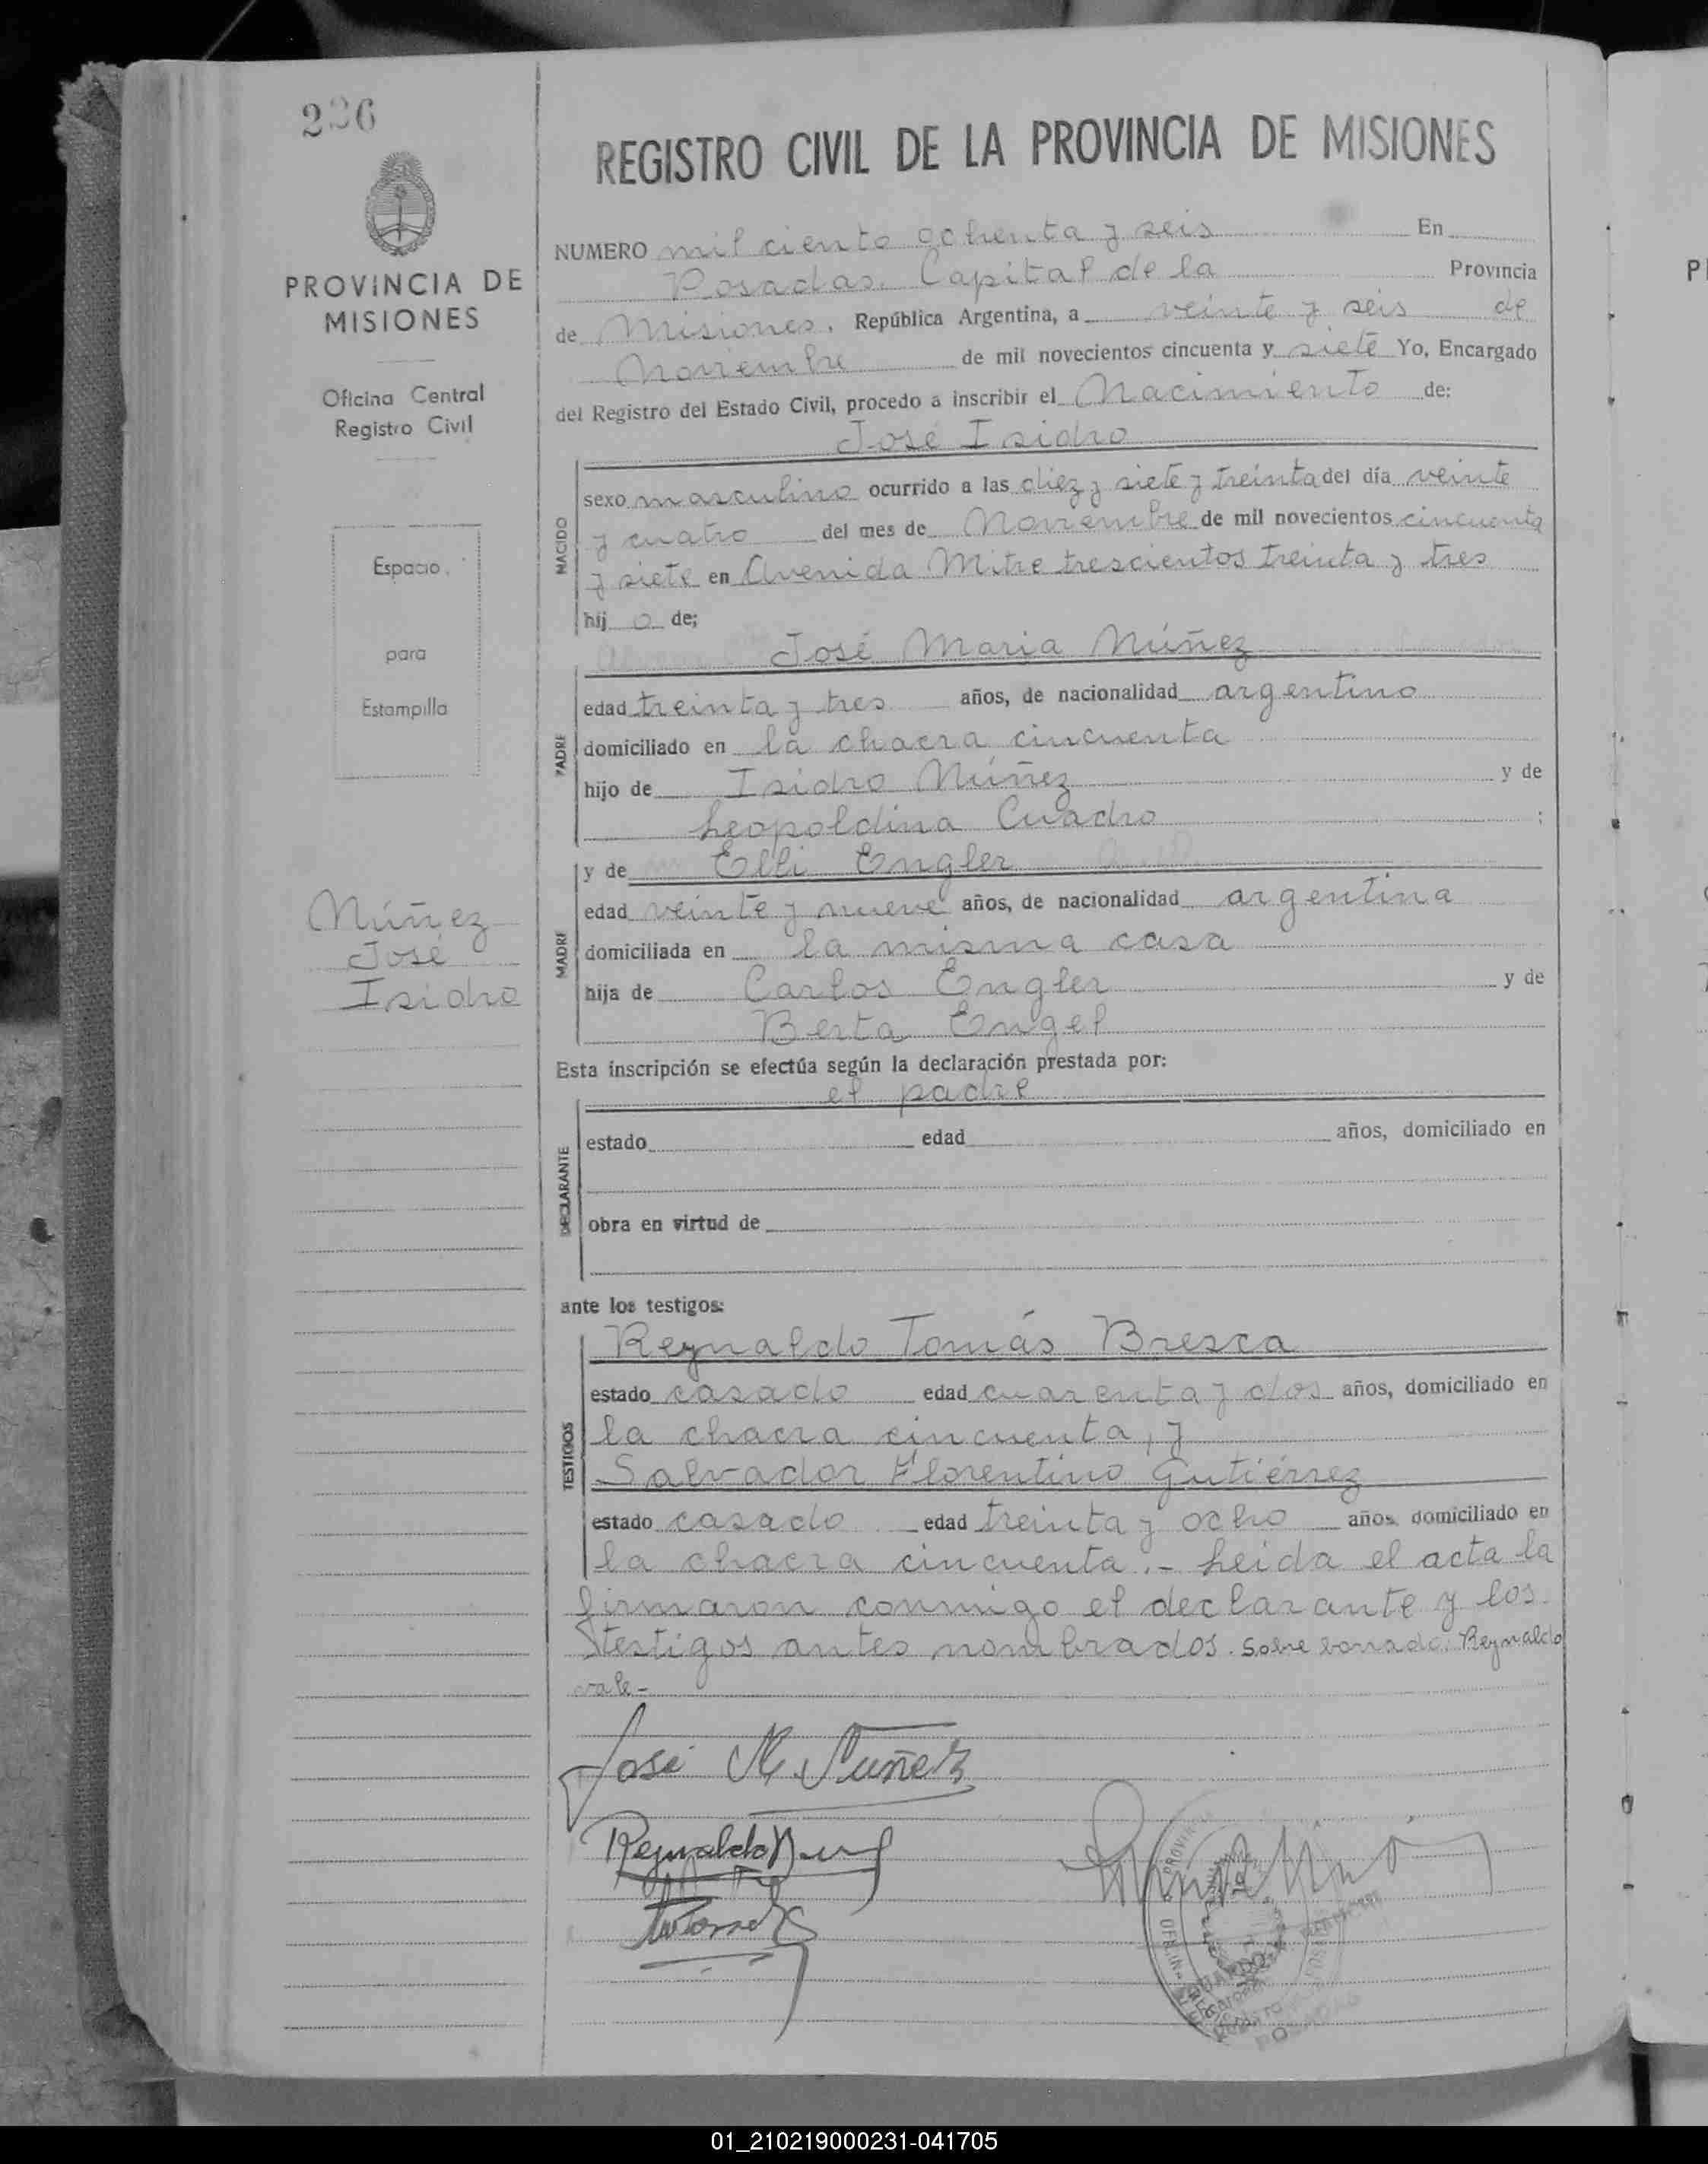 236
PROVINCIA DE
MISIONES
Oficina Central
Registro Civil
Espacio
para
Estampilla
Núñez
José
Isidro
REGISTRO CIVIL DE LA PROVINCIA DE MISIONES
NUMERO mil ciento ochenta y seis En
Posadas, Capital de la Provincia
de Misiones, República Argentina, a veinte y seis de
Noviembre de mil novecientos cincuenta y siete Yo, Encargado
del Registro del Estado Civil, procedo a inscribir el Nacimiento de:
José Isidro
NACIDO
sexo masculino ocurrido a las diez y siete y treinta del día veinte
y cuatro del mes de Noviembre de mil novecientos cincuenta
y siete en Avenida Mitre trescientos treinta y tres
hij o de;
José Maria Núñez
PADRE
edad treinta y tres años, de nacionalidad argentino
domiciliado en la chacra cincuenta
hijo de Isidro Núñez y de
Leopoldina Cuadro ;
y de Elli Engler
MADRE
edad veinte y nueve años, de nacionalidad argentina
domiciliada en la misma casa
hija de Carlos Engler y de
Berta Engel
Esta inscripción se efectúa según la declaración prestada por:
el padre
DECLARANTE
estado edad años, domiciliado en
obra en virtud de
ante los testigos:
Reynaldo Tomás Bresca
TESTIGOS
estado casado edad cuarenta y dos años, domiciliado en
la chacra cincuenta, y
Salvador Florentino Gutiérrez
estado casado edad treinta y ocho años, domiciliado en
la chacra cincuenta.- Leida el acta la
firmaron conmigo el declarante y los
testigos antes nombrados. Sobre borrado: Reynaldo
vale-
José M. Nuñez
Reynaldo
PROVINCIA
01_210219000231-041705